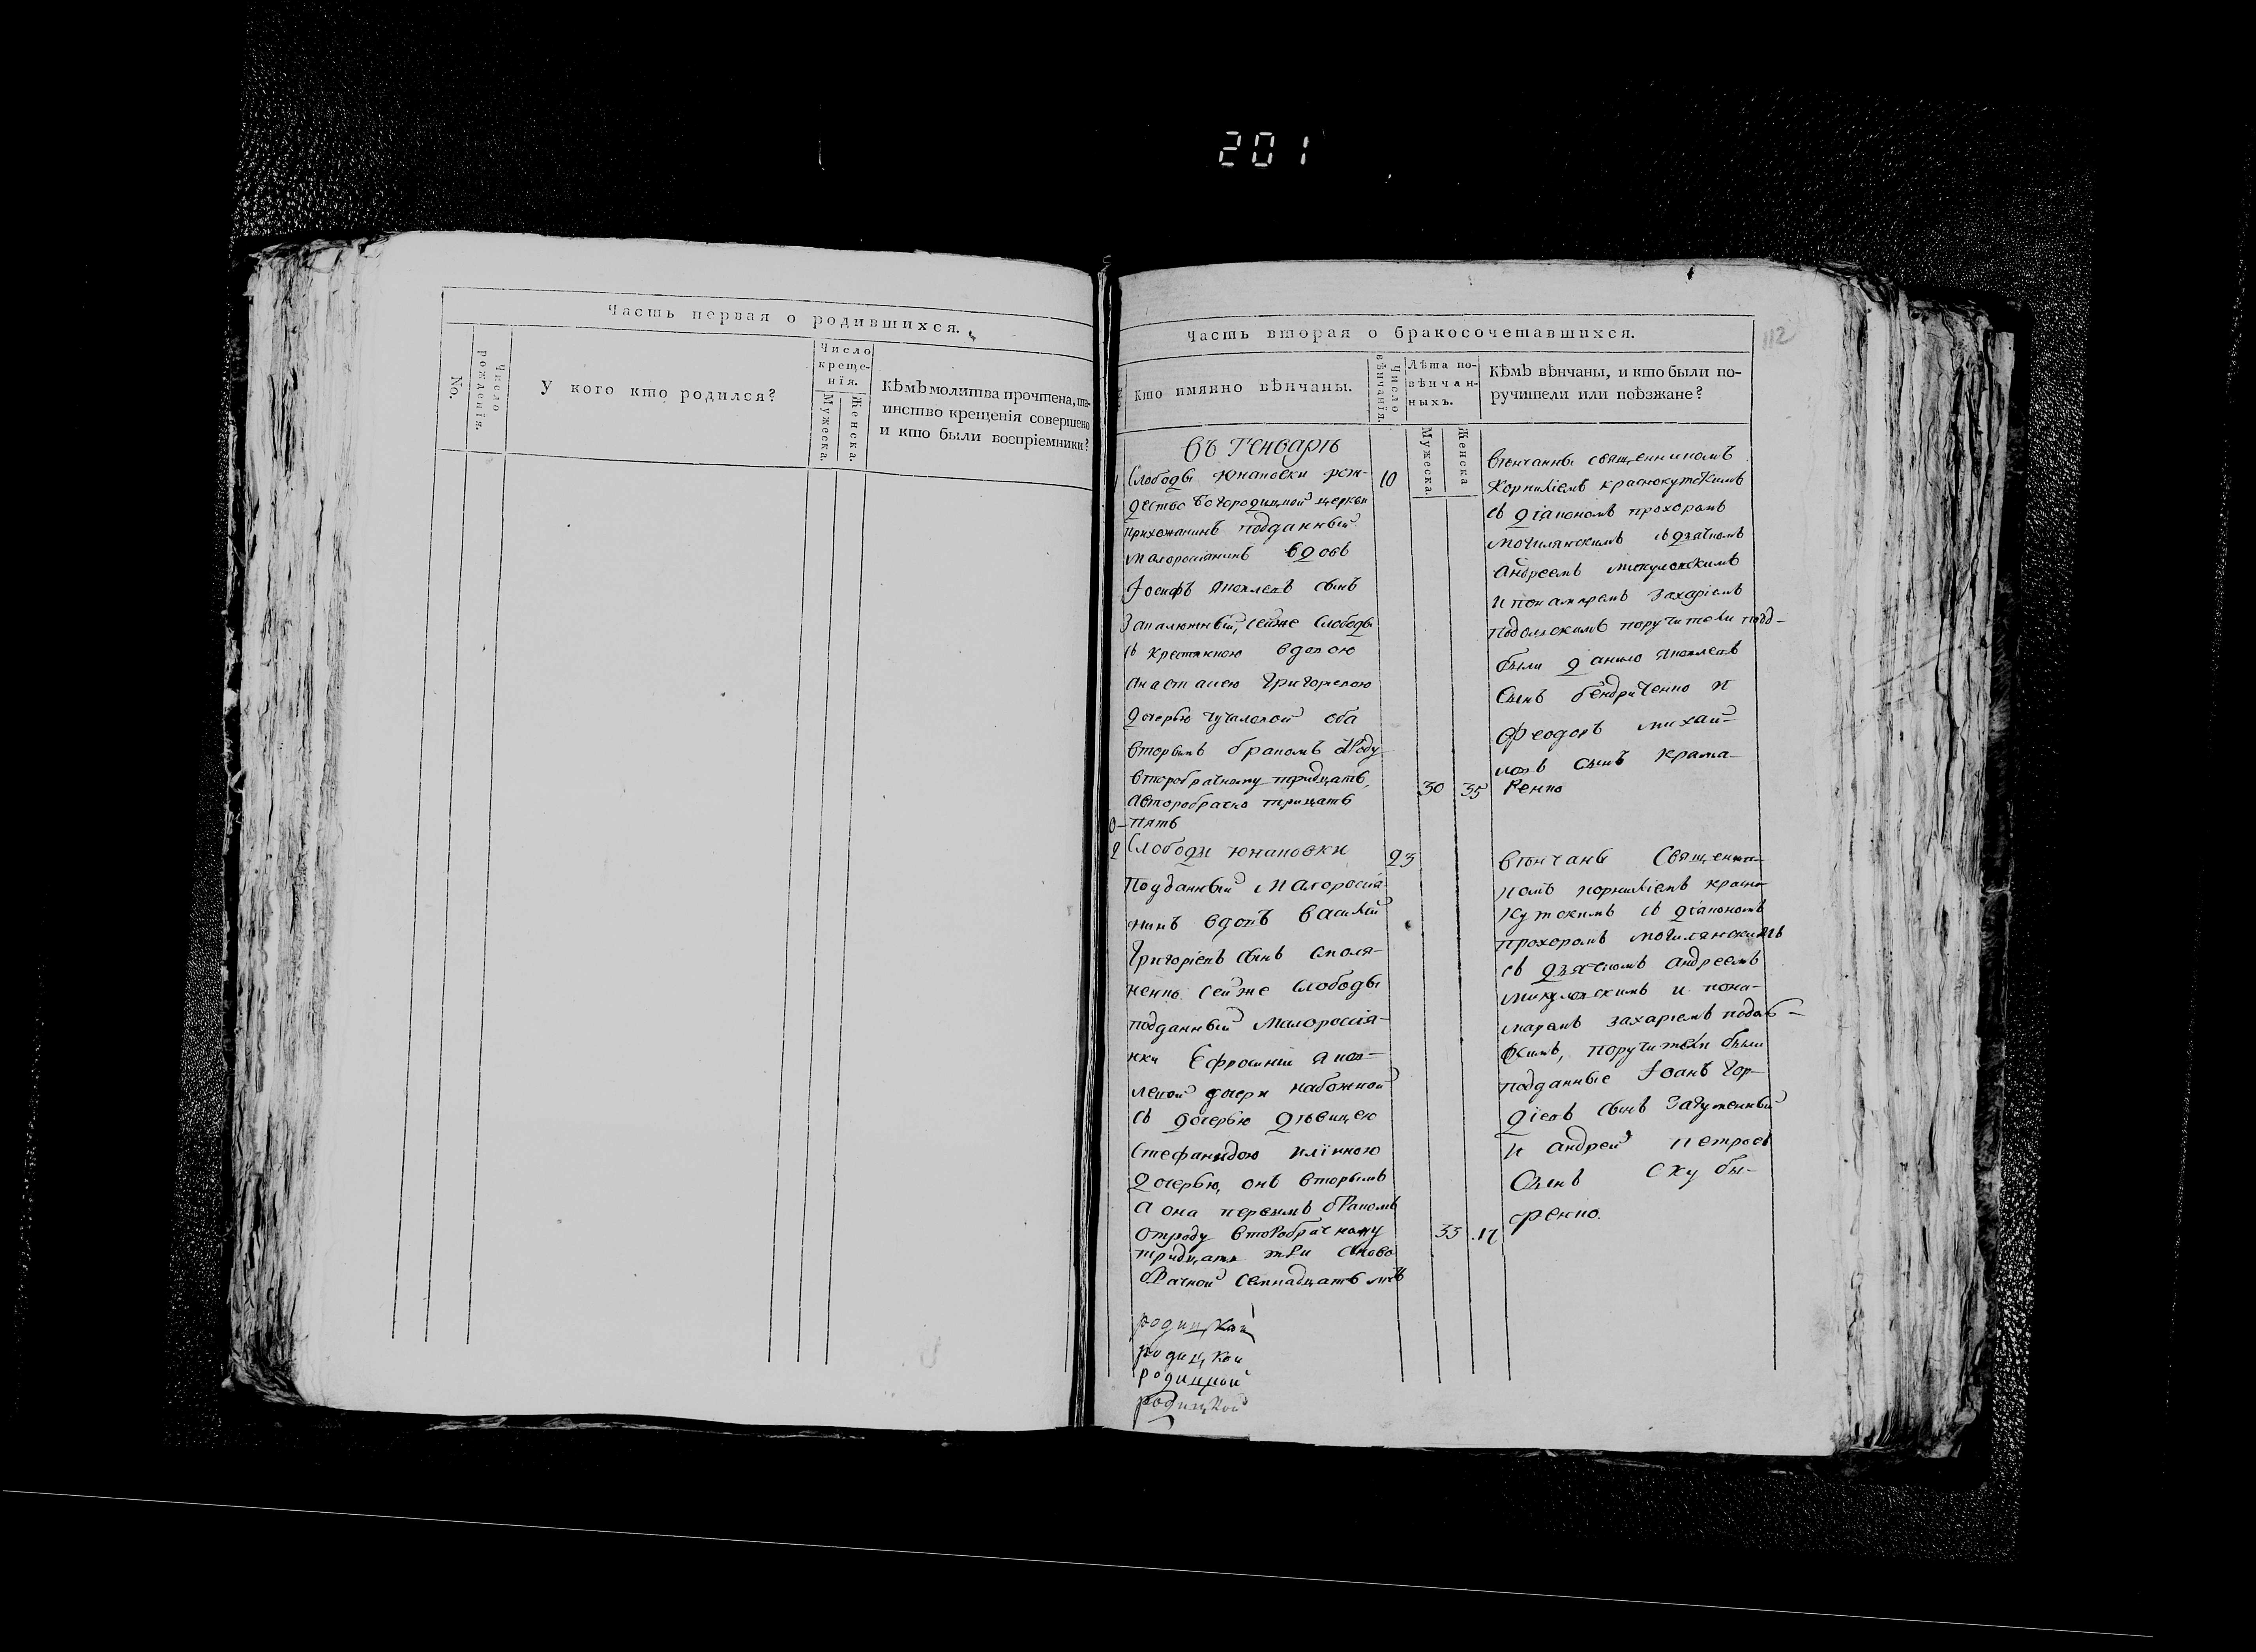 201
Часть первая о родившихся.
No.
Число рожденія.
У кого кто родился?
Число
креще-
нія.
Мужеска.
Женска.
Кѣмъ молитва прочтена, та-
инство крещенія совершено
и кто были воспріемники?
112
Часть вторая о бракосочетавшихся.
Кто имянно вѣнчаны.
Число вѣнчанія.
Лѣта по-
вѣнчан-
ныхъ.
Мужеска.
Женска
Кѣмъ вѣнчаны, и кто были по-
ручители или поѣзжане?
въ Генварѣ
1 Слободы Юнаповки рож- 10
дество Богородицкой церкви
прихожанинъ подданный
малоросіанинъ вдовъ
Іосифъ Яковлевъ сынъ
сейже Слободы
съ вдовою
Анастасиею Григоревою
дочерью оба
вторымъ бракомъ
второбрачному тридцать,
авторобрачно трицать 30 35
пять
вѣнчанны священникомъ
Корниліемъ краснокутскимъ
съ діакономъ прохоромъ
могилянскимъ съ дьячкомъ
Андреемъ микулинскимъ
и понамаремъ Захаріемъ
поручители
были данило Яковлевъ
сынъ бендриченко и
Феодоръ михай-
ловъ сынъ крама-
ренко
2 Слободы Юнаповки 23
Подданный малоросія-
нинъ вдовъ василий
Григоріевъ сынъ смоля-
ненко сейже слободы
подданный малоросія-
нки Ефросиніи Яков-
левой дочери набожной
съ дочерью дѣвицею
Стефанидою
дочерью, онъ вторымъ
а она первымъ бракомъ
отроду второбрачному 33 17
тридцать три
брачной семнадцать лѣтъ
вѣнчаны Священни-
комъ корниліемъ красно-
кутскимъ съ діакономъ
прохоромъ могилянскимъ
съ дьячкомъ андреемъ
микулинскимъ и пона-
маремъ захаріемъ
поручители были
подданные Іоанъ Гор-
діевъ сынъ
и андрей петровъ
сынъ
родицкой
родицкой
родицкой
родицкой